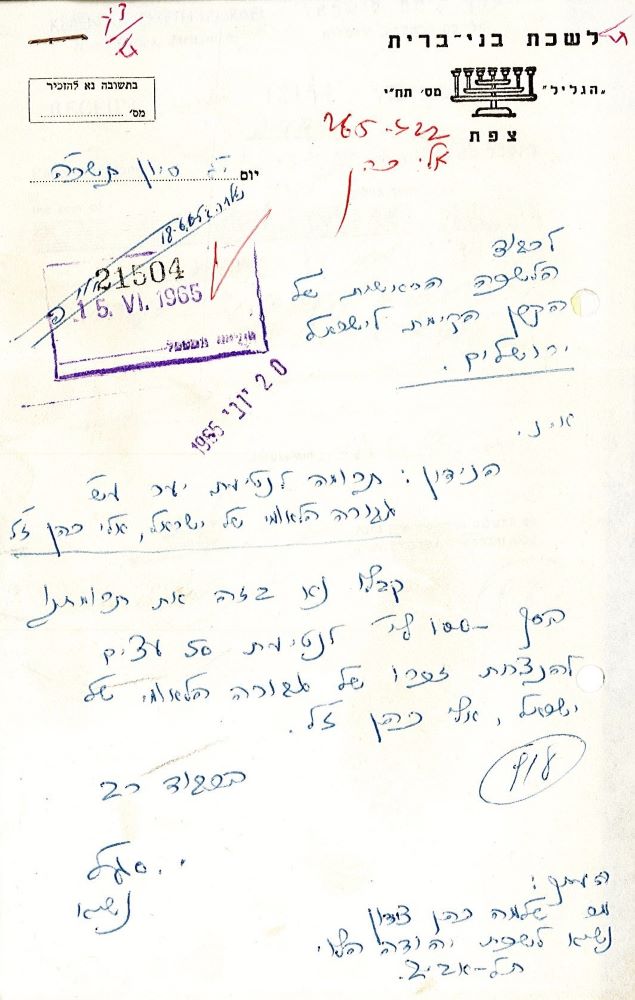 לשכת בני-ברית
"הגליל" מס׳ תח"י
צפת
בתשובה נא להזכיר
מס׳
265-722
אלי כהן
יום י"ג סיון תשכ"ה
18.6.65
21504
15. VI. 1965
20 יוני 1965
לכבוד
הלשכה הראשית של
הקרן הקימת לישראל
ירושלים.
א.נ.
הנידון: תרומה לנטיעת יער ע"ש
גבורה הלאומי של ישראל, אלי כהן ז"ל
קבלו נא בזה את תרומתנו
הסך לנטיעת 50 עצים
להנצחת זכרו של גבורה הלאומי של
ישראל, אלי כהן ז"ל.
בכבוד רב
סגל
נשיא
העתק:
מר שלמה כהן צידון
נשיא לשכת יהודה הלוי
תל-אביב.